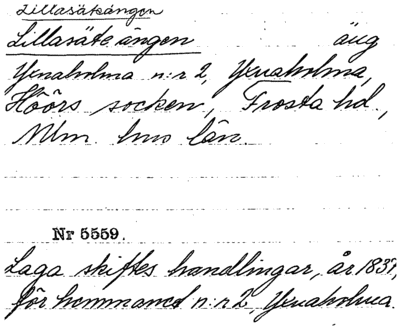 Lillasäteängen
Lillasäte ängen äng
Yxnaholma n:r 2, Yxnaholma,
Höörs socken, Frosta hd.,
Mlm. hus län.
Nr 5559.
Laga skiftes handlingar, år 1837,
för hemmanet n:r 2, Yxnaholma.